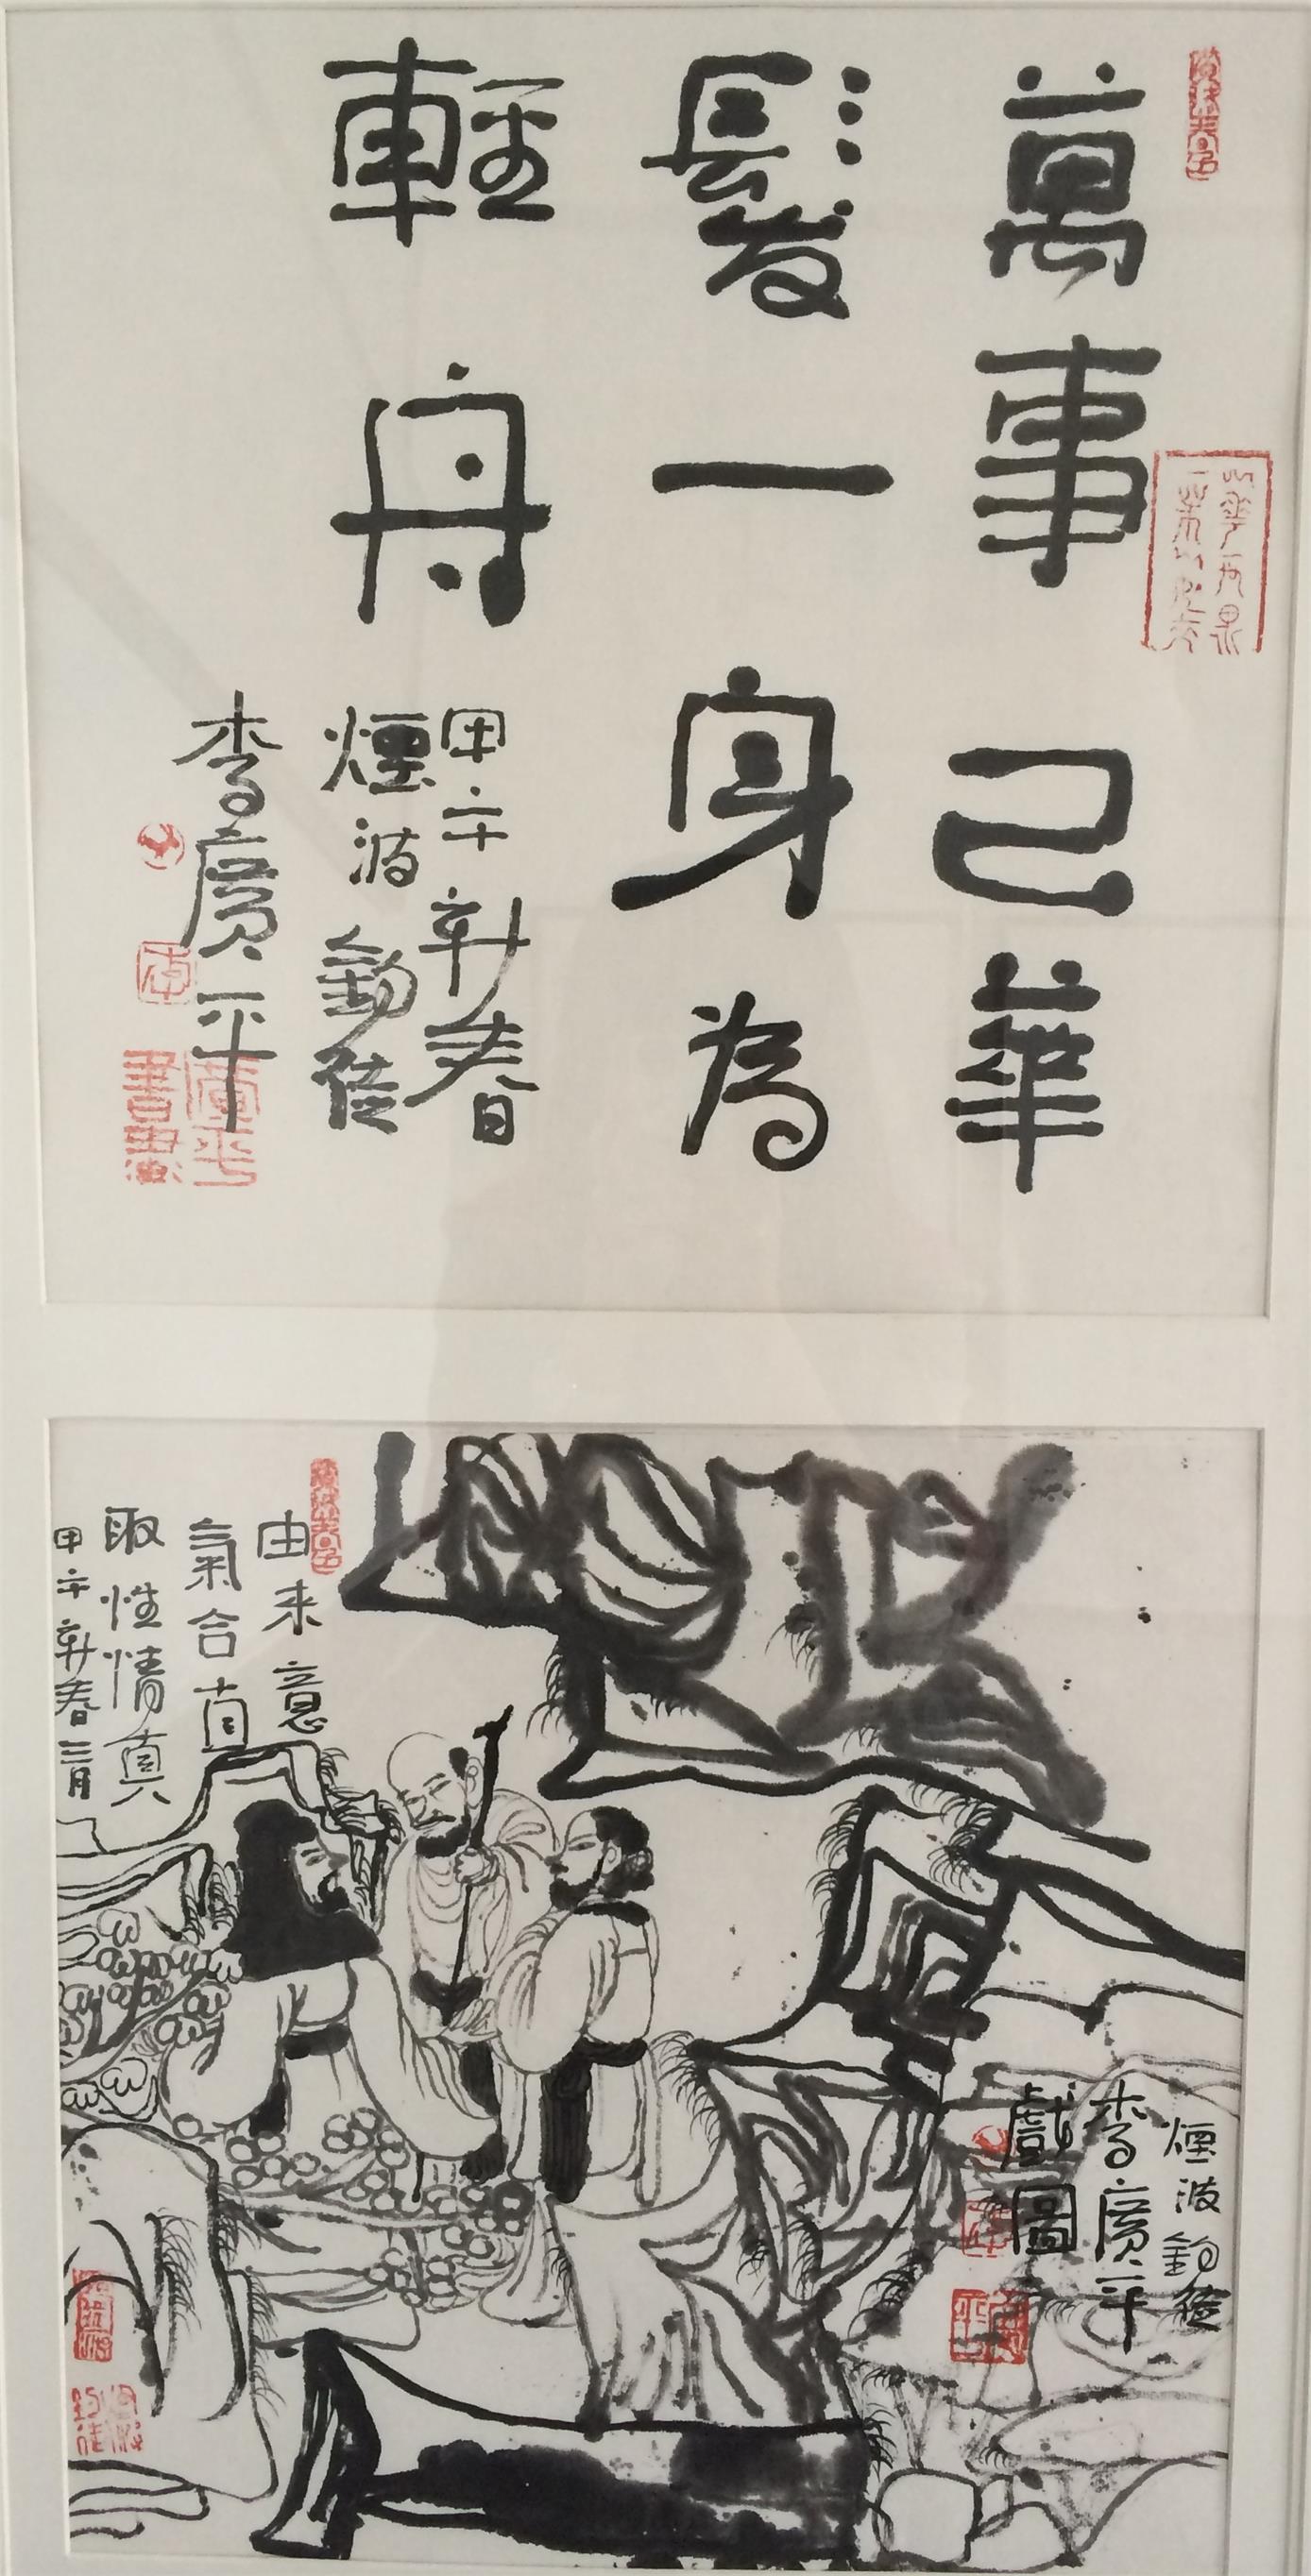 萬事已華
髮一身為
輕舟
甲午新春
煙波釣徒
李廣平
廣平
書畫
由来意
氣合直
取性情真
甲午新春三月
煙波釣徒
李廣平
戲圖